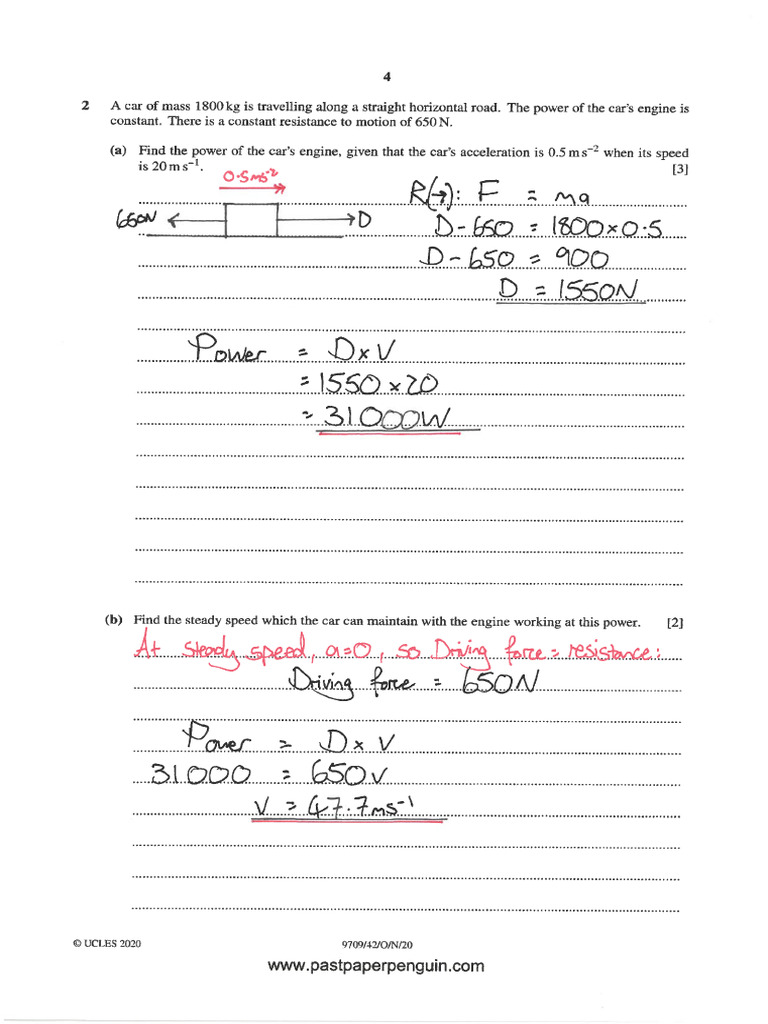 4
2 A car of mass 1800 kg is travelling along a straight horizontal road. The power of the car's engine is
constant. There is a constant resistance to motion of 650 N.
(a) Find the power of the car's engine, given that the car's acceleration is 0.5 m s⁻² when its speed
is 20 m s⁻¹. [3]
0.5ms⁻²
R(→): F = ma
650N D
D - 650 = 1800 × 0.5
D - 650 = 900
D = 1550N
Power = D × V
= 1550 × 20
= 31000W
(b) Find the steady speed which the car can maintain with the engine working at this power. [2]
At steady speed, a=0, so Driving force = resistance:
Driving force = 650N
Power = D × V
31000 = 650v
V = 47.7ms⁻¹
© UCLES 2020 9709/42/O/N/20
www.pastpaperpenguin.com